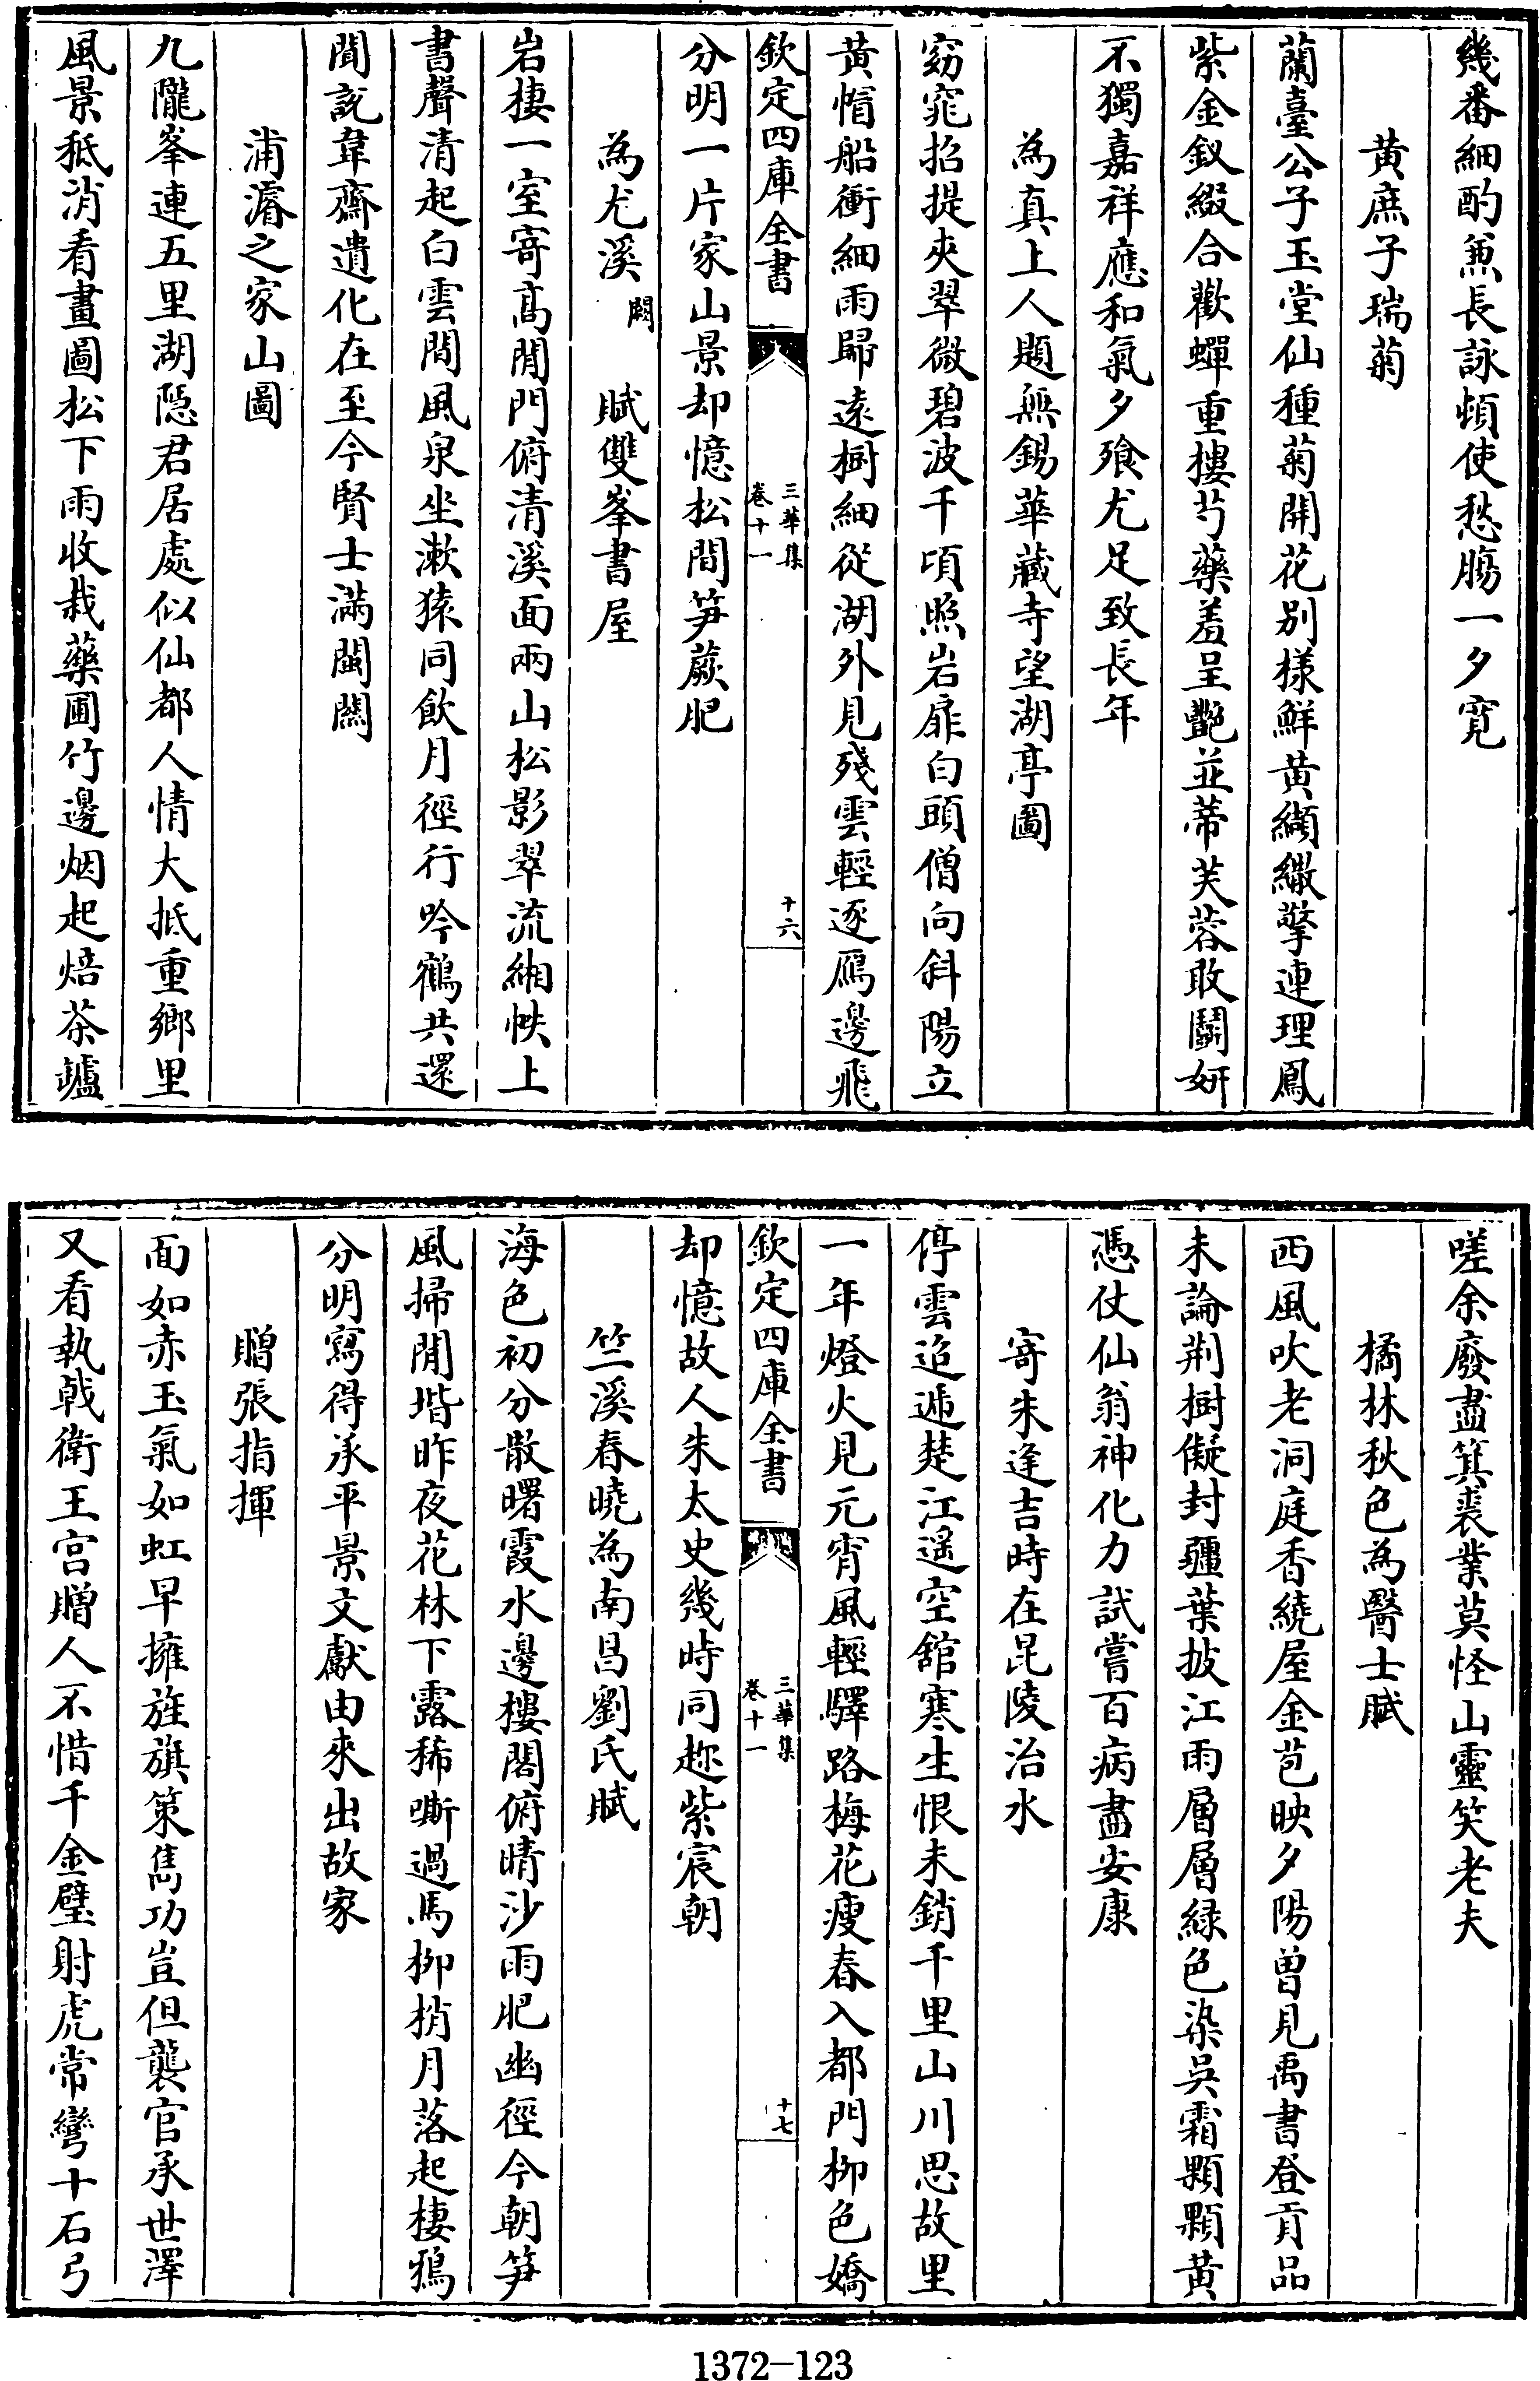 幾番細酌兼長詠頓使愁腸一夕寛
黄庶子瑞菊
蘭臺公子玉堂仙種菊開花别様鮮黄纈繖擎連理鳳
紫金釵綴合歡蟬重樓芍藥羞呈艷並蒂芙蓉敢鬬妍
不獨嘉祥應和氣夕飱尤足致長年
為真上人題無錫華藏寺望湖亭圖
窈窕招提夾翠微碧波千頃照岩扉白頭僧向斜陽立
黄帽船衝細雨歸遠樹細從湖外見殘雲輕逐鴈邊飛
欽定四庫全書
三華集
卷十一
十六
分明一片家山景却憶松間笋蕨肥
為尤溪闕賦雙峯書屋
岩棲一室寄髙閒門俯清溪面兩山松影翠流緗帙上
書聲清起白雲間風泉坐漱猿同飲月徑行吟鶴共還
聞説韋齋遺化在至今賢士滿閩關
浦濬之家山圖
九隴峯連五里湖隠君居處似仙都人情大抵重鄉里
風景秪消看畫圖松下雨收栽藥圃竹邊烟起焙茶罏
嗟余廢盡箕裘業莫怪山靈笑老夫
橘林秋色為醫士賦
西風吹老洞庭香繞屋金苞映夕陽曾見禹書登貢品
未論荆樹儗封疆葉披江雨層層緑色染吳霜顆顆黄
憑仗仙翁神化力試嘗百病盡安康
寄朱逢吉時在昆陵治水
停雲迢遞楚江遥空舘寒生恨未銷千里山川思故里
一年燈火見元宵風輕驛路梅花瘦春入都門栁色嬌
欽定四庫全書
三華集
卷十一
十七
却憶故人朱太史幾時同趂紫宸朝
竺溪春曉為南昌劉氏賦
海色初分散曙霞水邊樓閣俯晴沙雨肥幽徑今朝笋
風掃閒堦昨夜花林下露稀嘶過馬栁梢月落起棲鴉
分明寫得承平景文獻由來出故家
贈張指揮
面如赤玉氣如虹早擁旌旗策雋功豈但襲官承世澤
又看執㦸衛王宫贈人不惜千金璧射虎常彎十石弓
1372-123